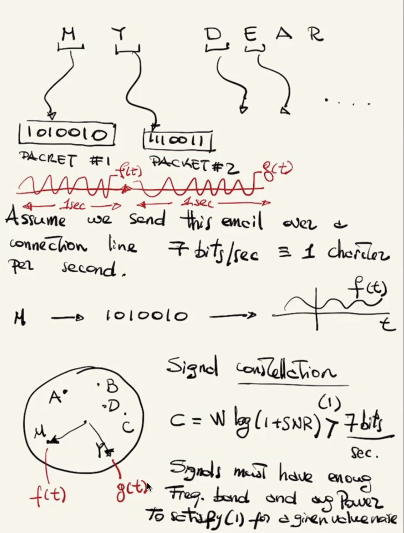 M Y D E A R
1010010 1110011 . . . .
PACKET #1 f(t) PACKET #2 g(t)
1sec 1sec
Assume we send this email over a
connection line 7 bits/sec ≡ 1 charcter
per second.
f(t)
M → 1010010 → t
Signal constellation
A B
D C
M Y
f(t) g(t)
(1)
C = W log(1+SNR) > 7 bits
sec.
Signals must have enoug
Freq. band and avg Power
to satisfy (1) for a given value noise